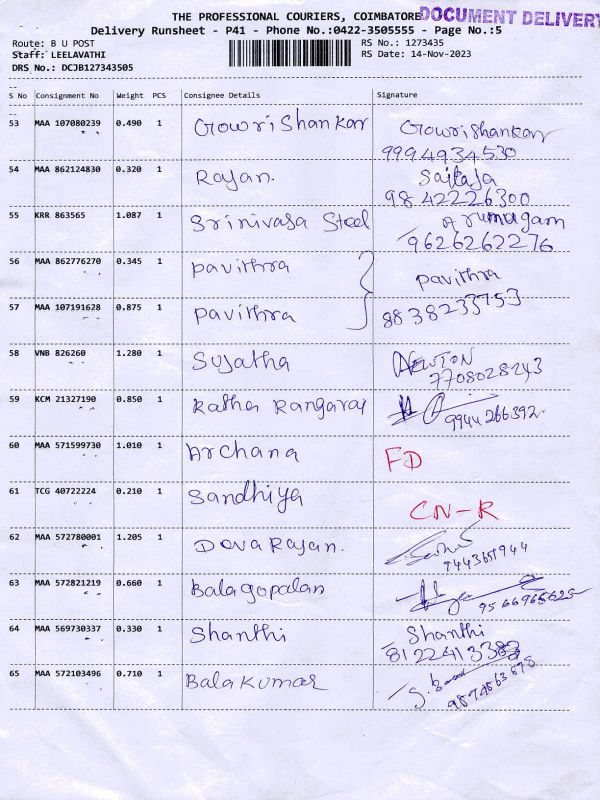 THE PROFESSIONAL COURIERS, COIMBATORE DOCUMENT DELIVERY
Delivery Runsheet - P41 - Phone No.:0422-3505555 - Page No.:5
Route: B U POST RS No.: 1273435
Staff: LEELAVATHI RS Date: 14-Nov-2023
DRS No.: DCJB127343505
S No Consignment No Weight PCS Consignee Details Signature
53 MAA 107080239 0.490 1 Gowri Shankar Gowrishankar
9994934530
54 MAA 862124830 0.320 1 Rajan.
9842226300
55 KRR 863565 1.087 1 Srinivasa Steel Arumugam
9626262276
56 MAA 862776270 0.345 1 Pavithra Pavithra
57 MAA 107191628 0.875 1 Pavithra 8838233753
58 VNB 826260 1.280 1 Sujatha NEWTON
7708028243
59 KCM 21327190 0.850 1 Ratha Rangaraj 9944266392
60 MAA 571599730 1.010 1 Archana FD
61 TCG 40722224 0.210 1 Sandhiya CN-R
62 MAA 572780001 1.205 1 Deva Rajan.
63 MAA 572821219 0.660 1 Balagopalan
64 MAA 569730337 0.330 1 Shanthi Shanthi
65 MAA 572103496 0.710 1 Bala Kumar